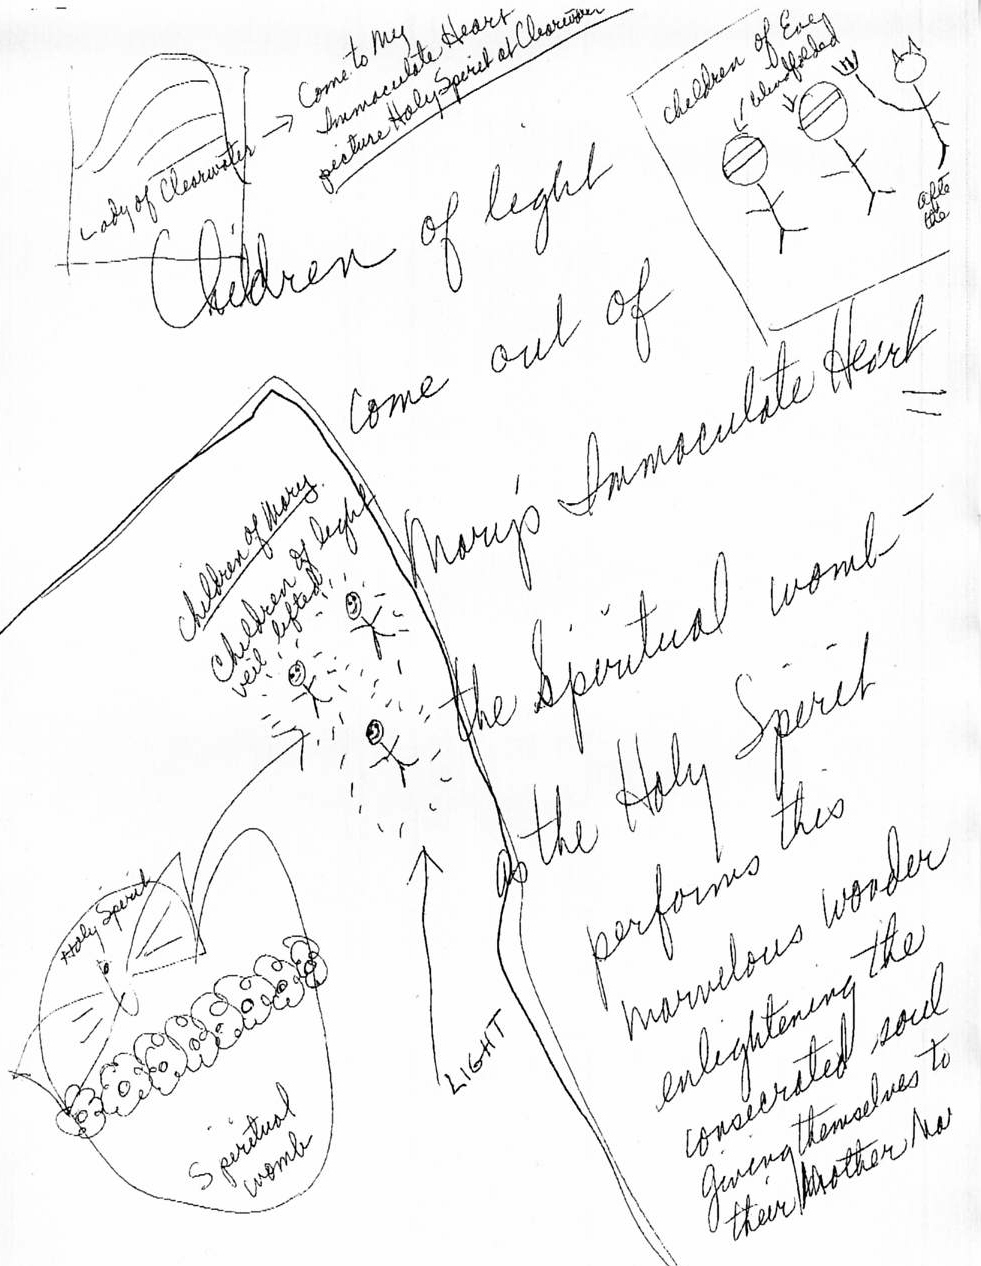 Come to My
Immaculate Heart
picture Holy Spirit at Clearwater
Lady of Clearwater
children of Eve
blindfolded
afte
the
Children of light
come out of
Mary's Immaculate Heart
the Spiritual womb -
as the Holy Spirit
performs this
marvelous wonder
enlightening the
consecrated soul
giving themselves to
their Mother Ma
children of Mary.
Children of light
veil lifted
Holy Spirit
LIGHT
Spiritual
womb